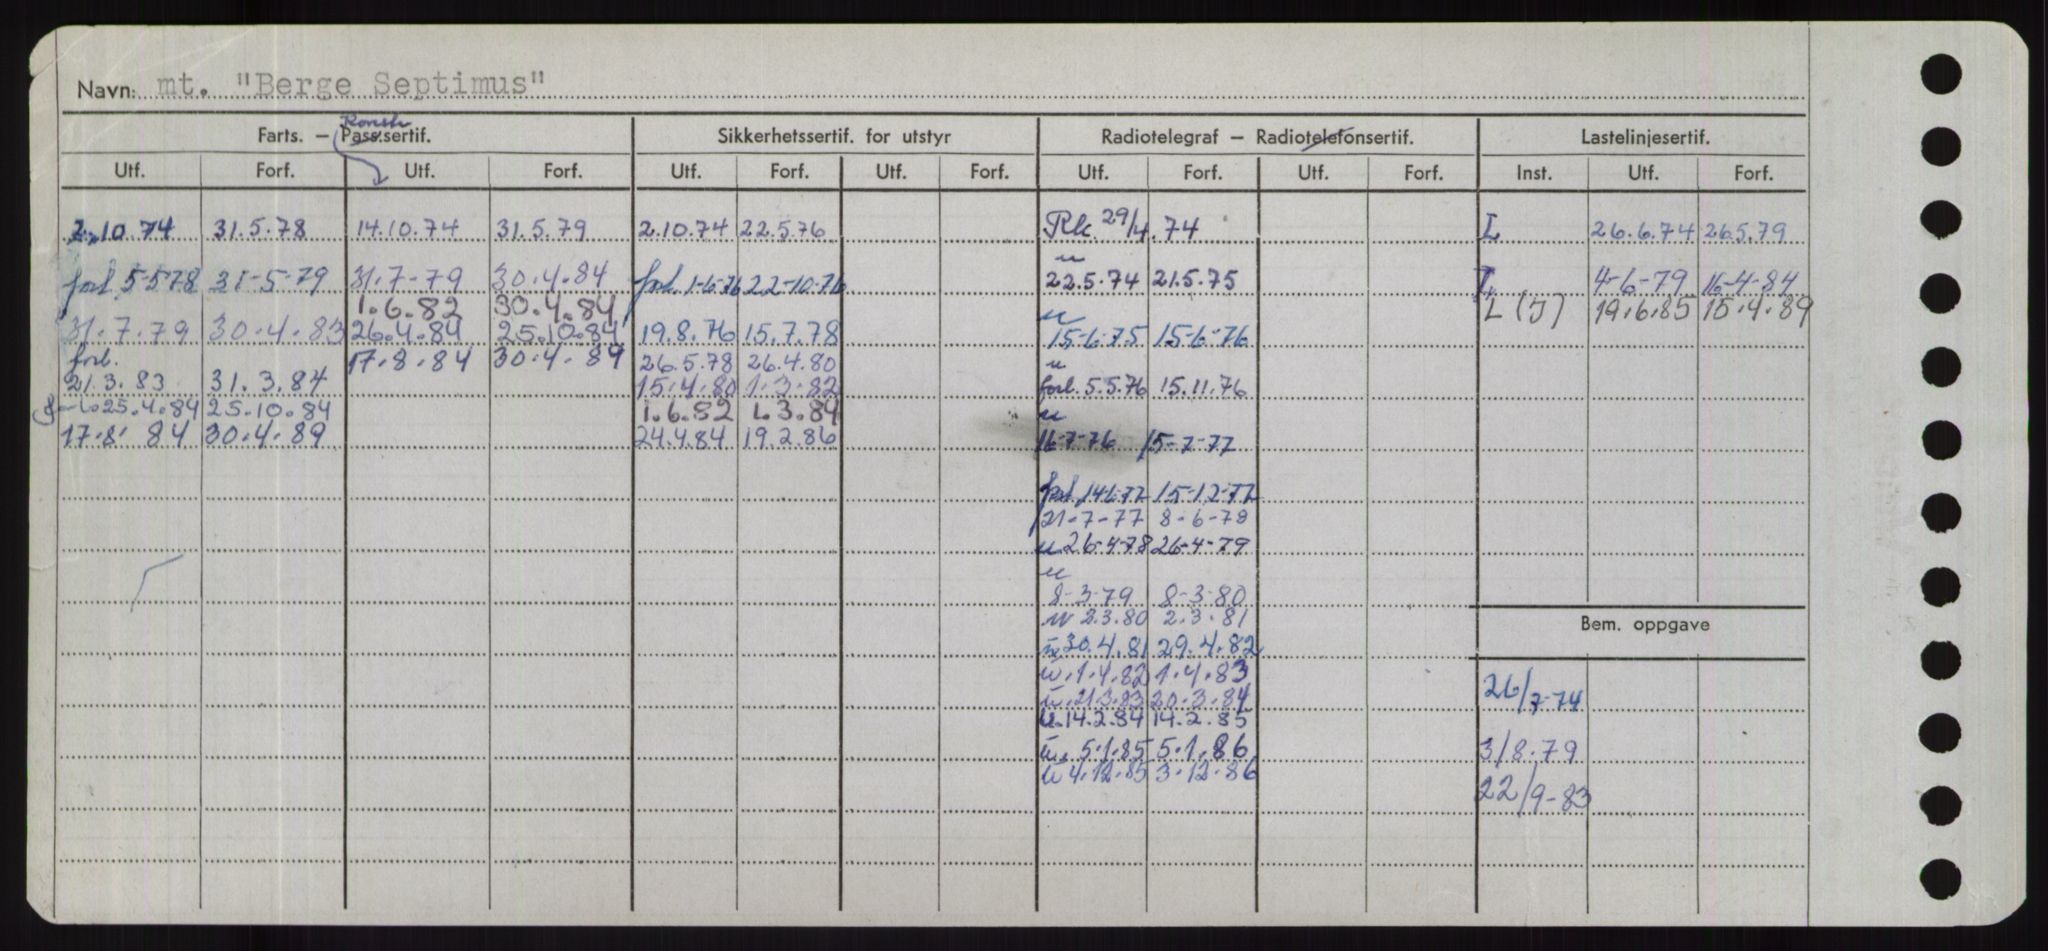 Navn: mt. "Berge Septimus"
Konstr
Farts. — Pass.sertif. Sikkerhetssertif. for utstyr Radiotelegraf — Radiotelefonsertif. Lastelinjesertif.
Utf. Forf. Utf. Forf. Utf. Forf. Utf. Forf. Utf. Forf. Utf. Forf. Inst. Utf. Forf.
2.10.74 31.5.78 14.10.74 31.5.79 2.10.74 22.5.76 Rk. 29/4.74 L 26.6.74 26.5.79
u
forl 5-5-78 31-5-79 31.7-79 30.4.84 forl. 1-6-76 22-10-76 22.5.74 21.5.75 L 4-6-79 16-4-84
1.6.82 30.4.84 u L (J) 19.6.85 15.4.89
31.7.79 30.4.83 26.4.84 25.10.84 19.8.76 15.7.78 15-6-75 15-6-76
forl. 17.8.84 30.4.89 26.5.78 26.4.80 u
21.3.83 31.3.84 15.4.80 1.3.82 forl. 5.5.76 15.11.76
25.4.84 25.10.84 1.6.82 1.3.84 u
17.8.84 30.4.89 24.4.84 19.2.86 16-7-76 15-7-77
forl. 14-6-77 15-12-77
21-7-77 8-6-78
u 26-4-78 26-4-79
u
8-3-79 8-3-80
u 2.3.80 2.3.81
Bem. oppgave
u 30.4.81 29.4.82
u.1.4.82 1.4.83
26/7-74
u.21.3.83 20.3.84
u.14.2.84 14.2.85
u. 5.1.85 5.1.86
3/8.79
u 4.12.85 3.12.86
22/9-83